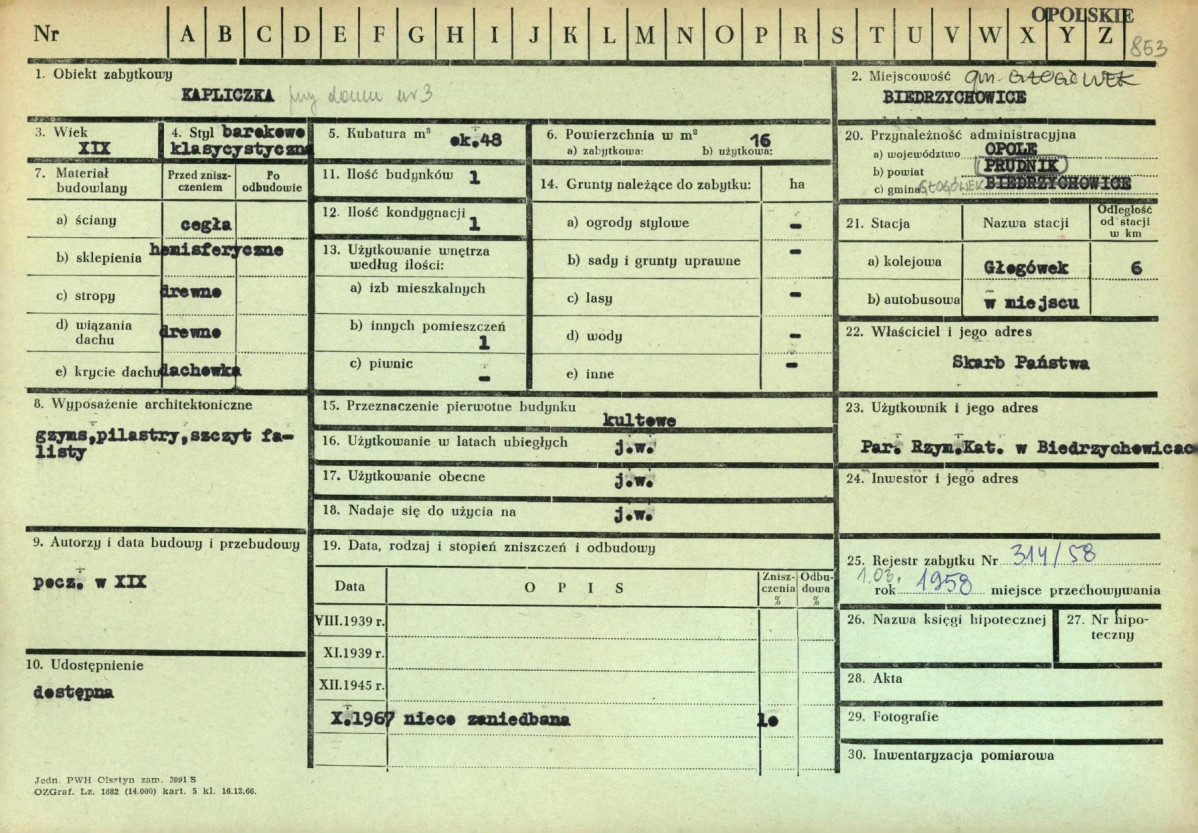 OPOLSKIE
Nr A B C D E F G H I J K L M N O P R S T U V W X Y Z 853
1. Obiekt zabytkowy
KAPLICZKA przy domu nr 3
2. Miejscowość gm. GŁOGÓWEK
BIEDRZYCHOWICE
3. Wiek
XIX
4. Styl barokowo
klasycystyczna
5. Kubatura m³
ok.48
6. Powierzchnia w m² 16
a) zabytkowa: b) użytkowa:
20. Przynależność administracyjna
a) województwo OPOLE
b) powiat PRUDNIK
c) gmina GŁOGÓWEK BIEDRZYCHOWICE
7. Materiał budowlany
Przed znisz-
czeniem
Po
odbudowie
a) ściany cegła
b) sklepienia hemisferyczne
c) stropy drewno
d) wiązania
dachu drewno
e) krycie dachu dachowka
11. Ilość budynków 1
12. Ilość kondygnacji
1
13. Użytkowanie wnętrza
według ilości:
a) izb mieszkalnych
b) innych pomieszczeń
1
c) piwnic
-
14. Grunty należące do zabytku: ha
a) ogrody stylowe -
b) sady i grunty uprawne -
c) lasy -
d) wody -
e) inne -
21. Stacja Nazwa stacji Odległość
od stacji
w km
a) kolejowa Głogówek 6
b) autobusowa w miejscu
22. Właściciel i jego adres
Skarb Państwa
8. Wyposażenie architektoniczne
gzyms,pilastry,szczyt fa-
listy
15. Przeznaczenie pierwotne budynku
kultowe
16. Użytkowanie w latach ubiegłych
j.w.
17. Użytkowanie obecne
j.w.
18. Nadaje się do użycia na
j.w.
23. Użytkownik i jego adres
Par. Rzym.Kat. w Biedrzychowicac
24. Inwestor i jego adres
9. Autorzy i data budowy i przebudowy
pocz. w XIX
19. Data, rodzaj i stopień zniszczeń i odbudowy
Data OPIS Znisz-
czenia
% Odbu-
dowa
%
VIII.1939 r.
XI.1939 r.
XII.1945 r.
X.1967 nieco zaniedbana 1o
25. Rejestr zabytku Nr 314/58
1.03.
rok 1958 miejsce przechowywania
26. Nazwa księgi hipotecznej
27. Nr hipo-
teczny
10. Udostępnienie
dostępna
28. Akta
29. Fotografie
30. Inwentaryzacja pomiarowa
Jedn. PWH Olsztyn zam. 3991 S
OZGraf. Lz. 1882 (14.000) kart. 5 kl. 16.12.66.